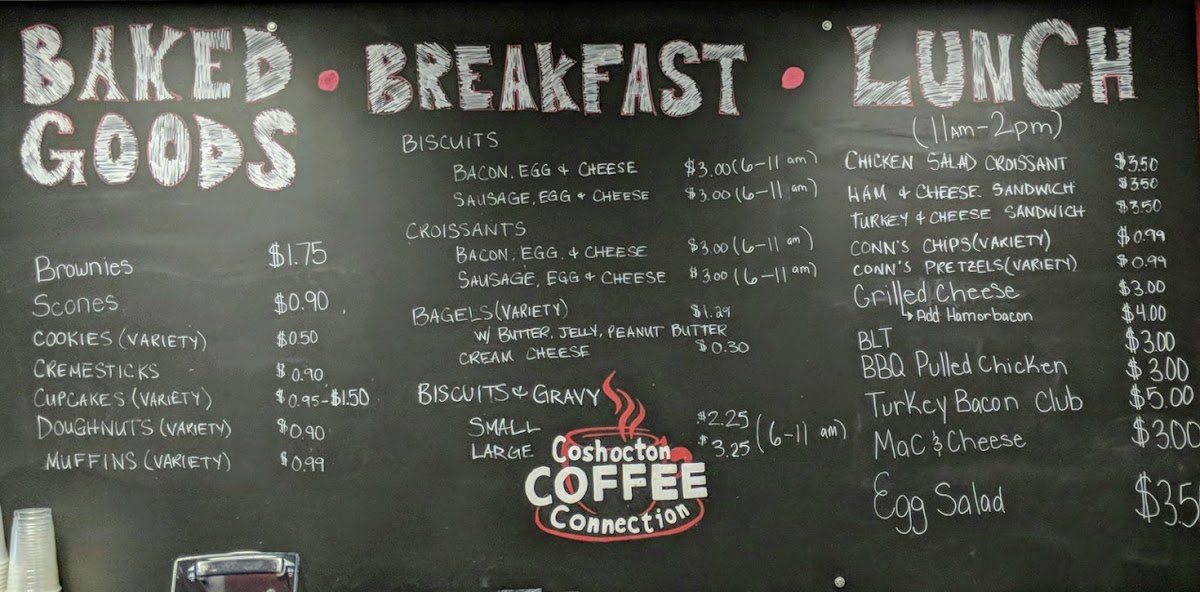 BAKED GOODS
Brownies $1.75
Scones $0.90
COOKIES (VARIETY) $0.50
CREMESTICKS $0.90
CUPCAKES (VARIETY) $0.95-$1.50
DOUGHNUTS (VARIETY) $0.90
MUFFINS (VARIETY) $0.99
• BREAKFAST •
BISCUITS
BACON, EGG & CHEESE $3.00 (6-11 am)
SAUSAGE, EGG & CHEESE $3.00 (6-11 am)
CROISSANTS
BACON, EGG, & CHEESE $3.00 (6-11 am)
SAUSAGE, EGG & CHEESE $3.00 (6-11 am)
BAGELS (VARIETY) $1.29
W/ BUTTER, JELLY, PEANUT BUTTER
CREAM CHEESE $0.30
BISCUITS & GRAVY
SMALL $2.25
LARGE $3.25 (6-11 am)
Coshocton
COFFEE
Connection
LUNCH
(11am-2pm)
CHICKEN SALAD CROISSANT $3.50
HAM & CHEESE SANDWICH $3.50
TURKEY & CHEESE SANDWICH $3.50
CONN'S CHIPS (VARIETY) $0.99
CONN'S PRETZELS (VARIETY) $0.99
Grilled Cheese $3.00
↳ Add Ham or bacon $4.00
BLT $3.00
BBQ Pulled Chicken $3.00
Turkey Bacon Club $5.00
Mac & Cheese $3.00
Egg Salad $3.5